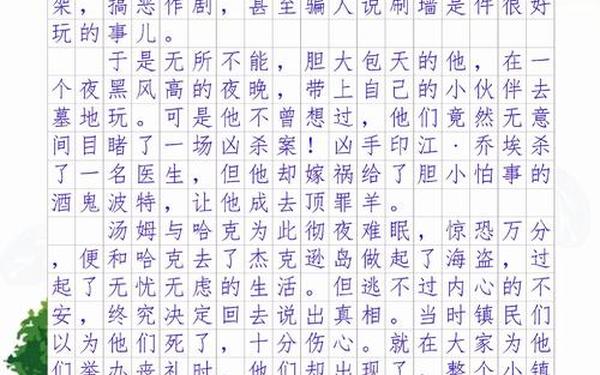 架，搞恶作剧，甚至骗人说刷墙是件很好
玩的事儿。
于是无所不能，胆大包天的他，在一
个夜黑风高的夜晚，带上自己的小伙伴去
墓地玩。可是他不曾想过，他们竟然无意
间目睹了一场凶杀案！凶手印江·乔埃杀
了一名医生，但他却嫁祸给了胆小怕事的
酒鬼波特，让他成去顶罪羊。
汤姆与哈克为此彻夜难眠，惊恐万分
，便和哈克去了杰克逊岛做起了海盗，过
起了无忧无虑的生活。但逃不过内心的不
安，终究决定回去说出真相。当时镇民们
以为他们死了，十分伤心。就在大家为他
们举办丧礼时，他们却出现了。整个小镇